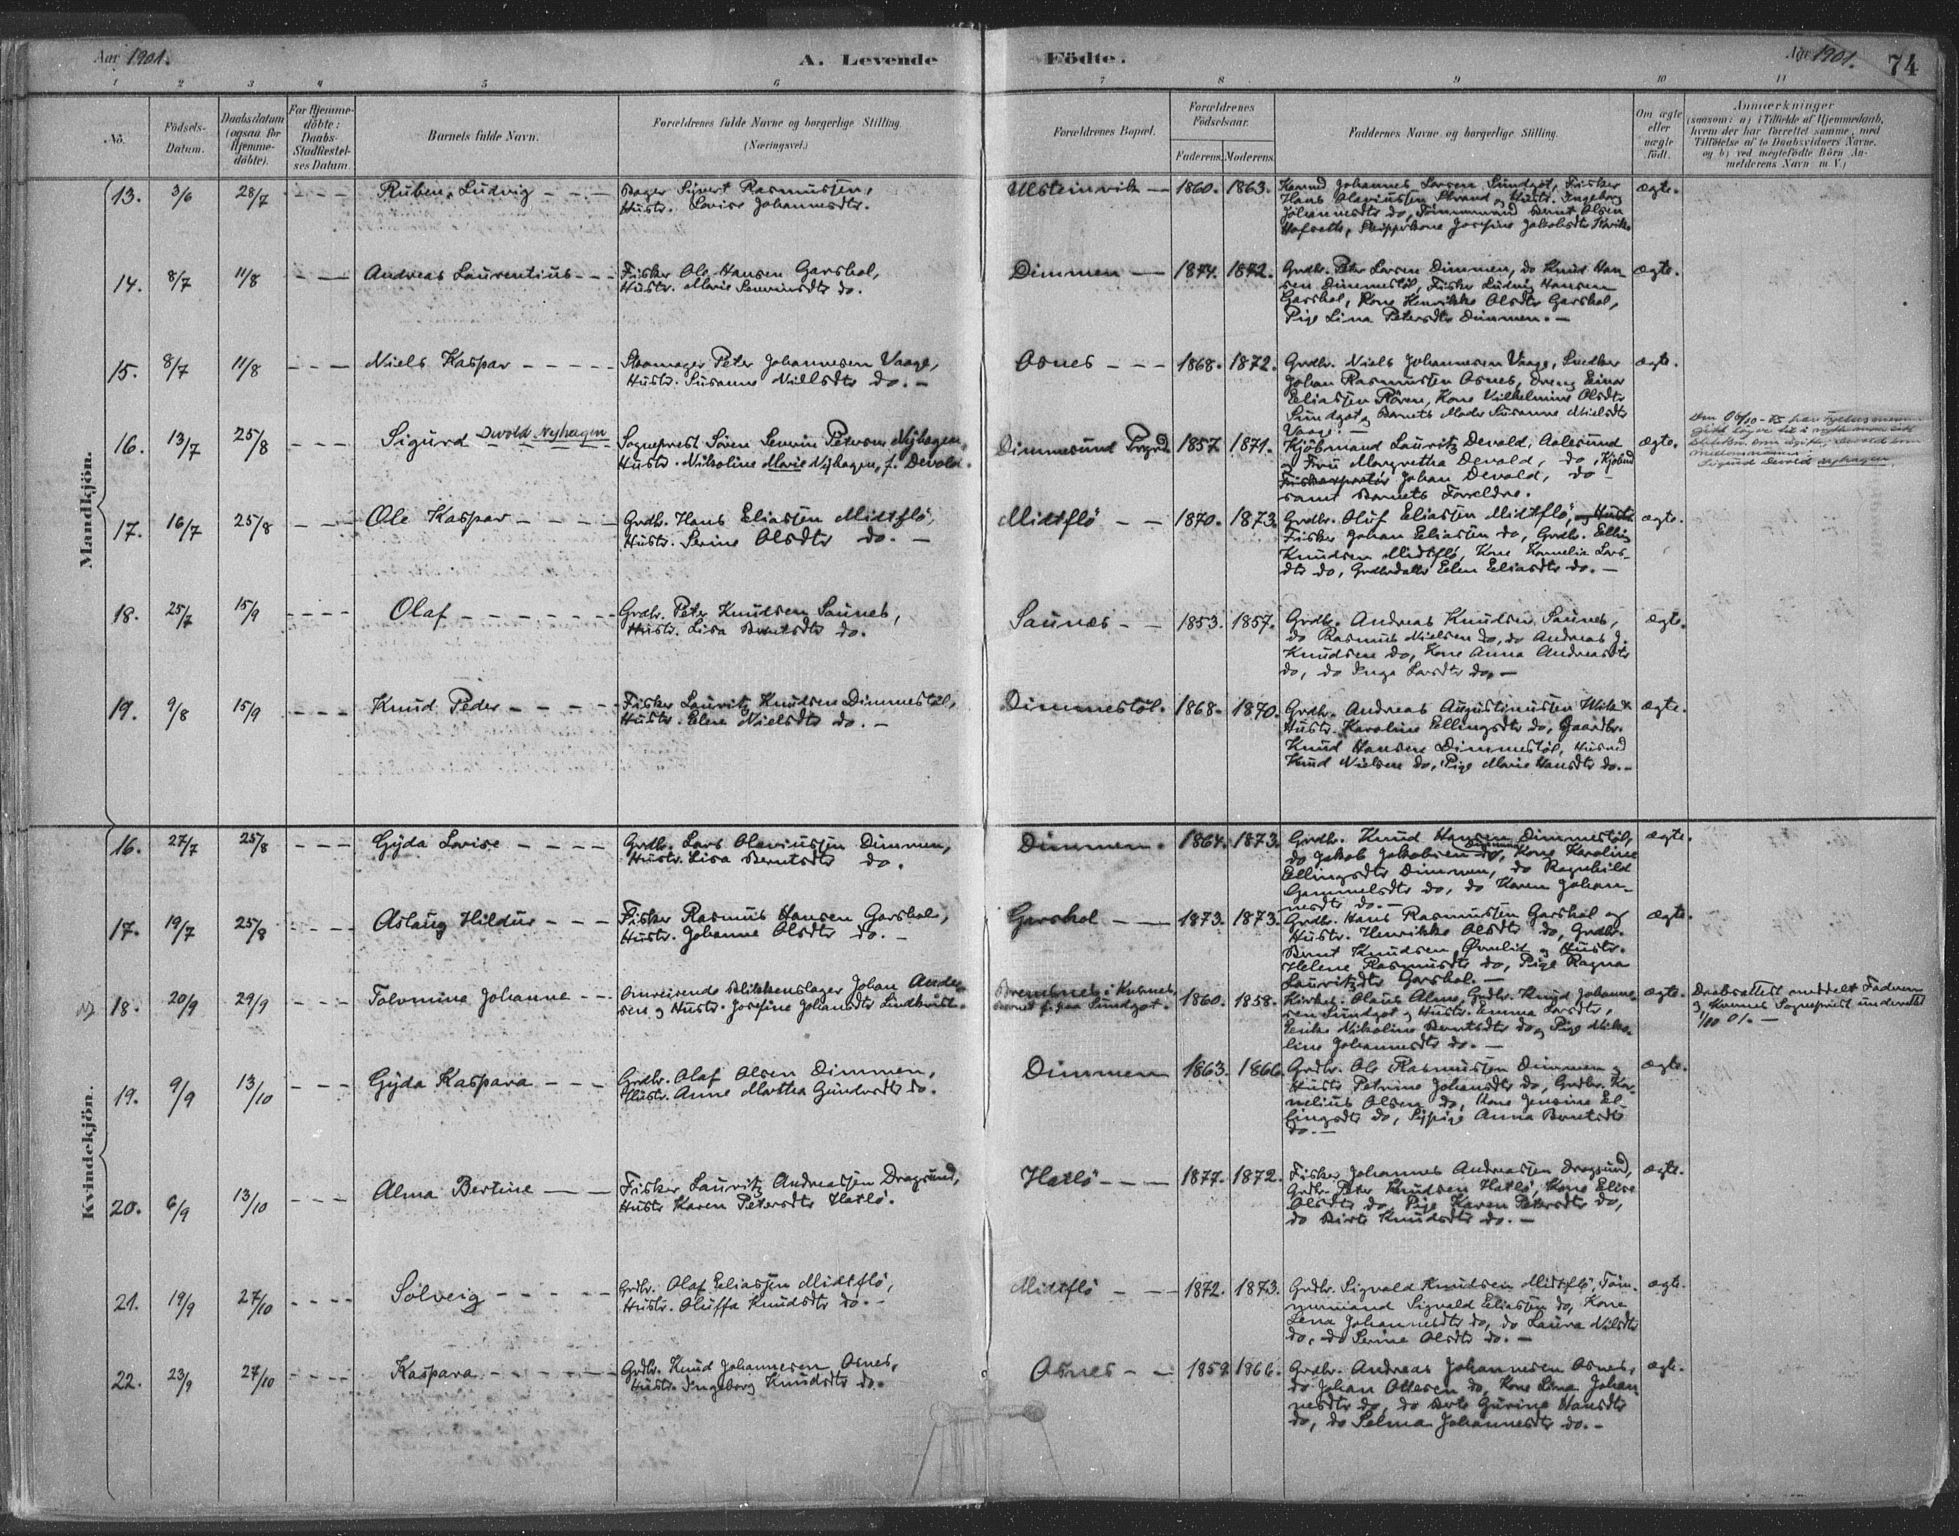 Aar 1901.
A. Levende
Födte.
Aar 1901.
74
1 2 3 4 5 6 7 8 9 10 11
No.
Födsels-
Datum.
Daabsdatum
(ogsaa for
Hjemme-
döbte).
For Hjemme-
döbte:
Daabs-
Stadfæstel-
ses Datum.
Barnets fulde Navn.
Forældrenes fulde Navne og borgerlige Stilling.
(Næringsvei.)
Forældrenes Bopæl.
Forældrenes
Födselsaar.
Faderens.
Moderens.
Faddernes Navne og borgerlige Stilling.
Om ægte
eller
uægte
födt.
Anmærkninger
(saasom: a) i Tilfælde af Hjemmedaab,
hvem der har forrettet samme, med
Tilföielse af to Daabsvidners Navne,
og b) ved uægtefödte Börn An-
melderens Navn m. V.)
Mandkjön.
13. 3/6 28/7 Ruben Ludvig
Bager Sivert Rasmussen,
Hustr. Lovise Johannesdtr.
Ulsteinvik 1860. 1863.
Johannes Larsen Sundgot, Fisker
Hans Olaviussen Strand og Hustr. Ingeborg
Johannesdtr do, Tömmermand Bernt Olsen
Hofseth, Skipperkone Josefine Jakobsdtr
ægte.
14. 8/7 11/8 Andreas Laurentius
Fisker Ole Hansen Garshol,
Hustr. Marie Severinsdtr do.
Dimmen 1874. 1872.
Grdbr. Peter Larsen Dimmen, do Knud Han-
sen Dimmestöl, Fisker Ludvig Hansen
Garshol, Kone Henrikke Olsdtr Garshol,
Pige Lina Petersdtr Dimmen.
ægte.
15. 8/7 11/8 Niels Kaspar
Skomager Peter Johannesen Vaage,
Hustr. Susanne Nielsdtr do.
Osnes 1868. 1872.
Grdbr. Niels Johannesen Vaage, Snedker
Johan Rasmussen Osnes, Dreng Einar
Eliassen Rören, Kone Vilhelmine Olsdtr
Sundgot og Barnets Moder Susanne Nielsdtr
Vaage.
ægte.
16. 13/7 25/8 Sigurd Devold Nyhagen
Sogneprest Sören Severin Petersen Nyhagen,
Hustr. Nikoline Marie Nyhagen, f. Devold.
Dimmesund Prgrd. 1857. 1871.
Kjöbmand Lauritz Devold, Aalesund
og Frue Margretha Devold, do, Kjöbmd
Johan Devold, do
samt Barnets Forældre.
ægte.
Sigurd Devold Nyhagen.
17. 16/7 25/8 Ole Kaspar
Grdbr. Hans Eliassen Midtflö,
Hustr. Serine Olsdtr do.
Midtflö 1870. 1873.
Grdbr. Oluf Eliassen Midtflö, og Hustr.
Fisker Johan Eliassen do, Grdbr. Elling
Knudsen Midtflö, Kone Kornelia Lars-
dtr do, Grdbrdatter Elen Eliasdtr do.
ægte.
18. 25/7 15/9 Olaf
Grdbr. Peter Knudsen Saunes,
Hustr. Lisa Berntsdtr do.
Saunæs 1853. 1857.
Grdbr. Andreas Knudsen Saunes,
do Rasmus Nielsen do, do Andreas J.
Knudsen do, Kone Anna Andreasdtr
do, do Inga Larsdtr do.
ægte.
19. 9/8 15/9 Knud Peder
Fisker Lauritz Knudsen Dimmestöl,
Hustr. Elen Nielsdtr do.
Dimmestöl. 1868. 1870.
Grdbr. Andreas Augustinussen
Hustr. Karoline Ellingsdtr do, Gaardbr.
Knud Hansen Dimmestöl,
Knud Nielsen do, Pige Marie Hansdtr do.
ægte.
Kvindekjön.
16. 27/7 25/8 Gyda Lovise
Grdbr. Lars Olaviussen Dimmen,
Hustr. Lisa Berntsdtr do.
Dimmen. 1864. 1873.
Grdbr. Knud Hansen Dimmestöl,
do Jakob Jakobsen do, Kone Karoline
Ellingsdtr Dimmen, do Ragnhild
Gammelsdtr do, do Karen Johan-
nesdtr do.
ægte.
17. 19/7 25/8 Aslaug Hildur
Fisker Rasmus Hansen Garshol,
Hustr. Johanne Olsdtr do.
Garshol 1873. 1873.
Grdbr. Hans Rasmussen Garshol og
Hustr. Henrikke Olsdtr do, Grdbr.
Bernt Knudsen Överlid og Hustr.
Helene Rasmusdtr do, Pige Ragna
Lauritzdtr Garshol.
ægte.
18. 20/9 29/9 Tolomine Johanne
Omreisende Blikkenslager Johan Ander-
sen og Hustr. Josefine Johansdtr Lindkvist.
Sundgot. 1860. 1858.
Kirkes. Olaus Alme, Grdbr. Knud Johanne-
sen Sundgot og Hustr. Emma Larsdtr,
Enke Nikoline Berntsdtr do og Pige Niko-
line Johannesdtr do.
ægte.
Daabsattest meddelt Faderen
og Sogneprest underrettet
1/10 01.
19. 9/9 13/10 Gyda Kaspara
Grdbr. Olaf Olsen Dimmen,
Hustr. Anne Martha Gundersdtr do.
Dimmen 1863. 1866.
Grdbr. Ole Rasmussen Dimmen og
Hustr. Petrine Johansdtr do, Grdbr. Kor-
nelius Olsen do, Kone Jensine El-
lingsdtr do, Sypige Anna Berntsdtr
do.
ægte.
20. 6/9 13/10 Alma Bertine
Fisker Lauritz Andreassen Dragsund,
Hustr Karen Petersdtr Hatlö.
Hatlö 1877. 1872.
Fisker Johannes Andreassen Dragsund,
Grdbr. Peter Knudsen Hatlö, Kone Elise
Olsdtr do, Pige Karen Petersdtr do,
do Birte Knudsdtr do.
ægte.
21. 19/9 27/10 Solveig
Grdbr. Olaf Eliassen Midtflö,
Hustr. Oluffa Knudsdtr do.
Midtflö 1872. 1873.
Grdbr. Sigvald Knudsen Midtflö, Töm-
mermand Sigvald Eliassen do, Kone
Lena Johannesdtr do, do Laura Nilsdtr
do, do Serine Olsdtr do.
ægte.
22. 23/9 27/10 Kaspara
Grdbr. Knud Johannesen Osnes,
Hustr. Ingeborg Knudsdtr do.
Osnes 1859. 1866.
Grdbr. Andreas Johannesen Osnes,
do Johan Ottesen do, Kone Lina Johan-
nesdtr do, do Berte Gurine Hansdtr
do, do Selma Johannesdtr do.
ægte.